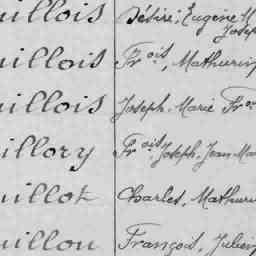 uillois Désiré, Eugène M
Joseph
uillois Frois, Mathurin
uillois Joseph Marie Fro
illory Frois, Joseph, Jean Ma
uillot Charles, Mathuri
uillou François, Julien